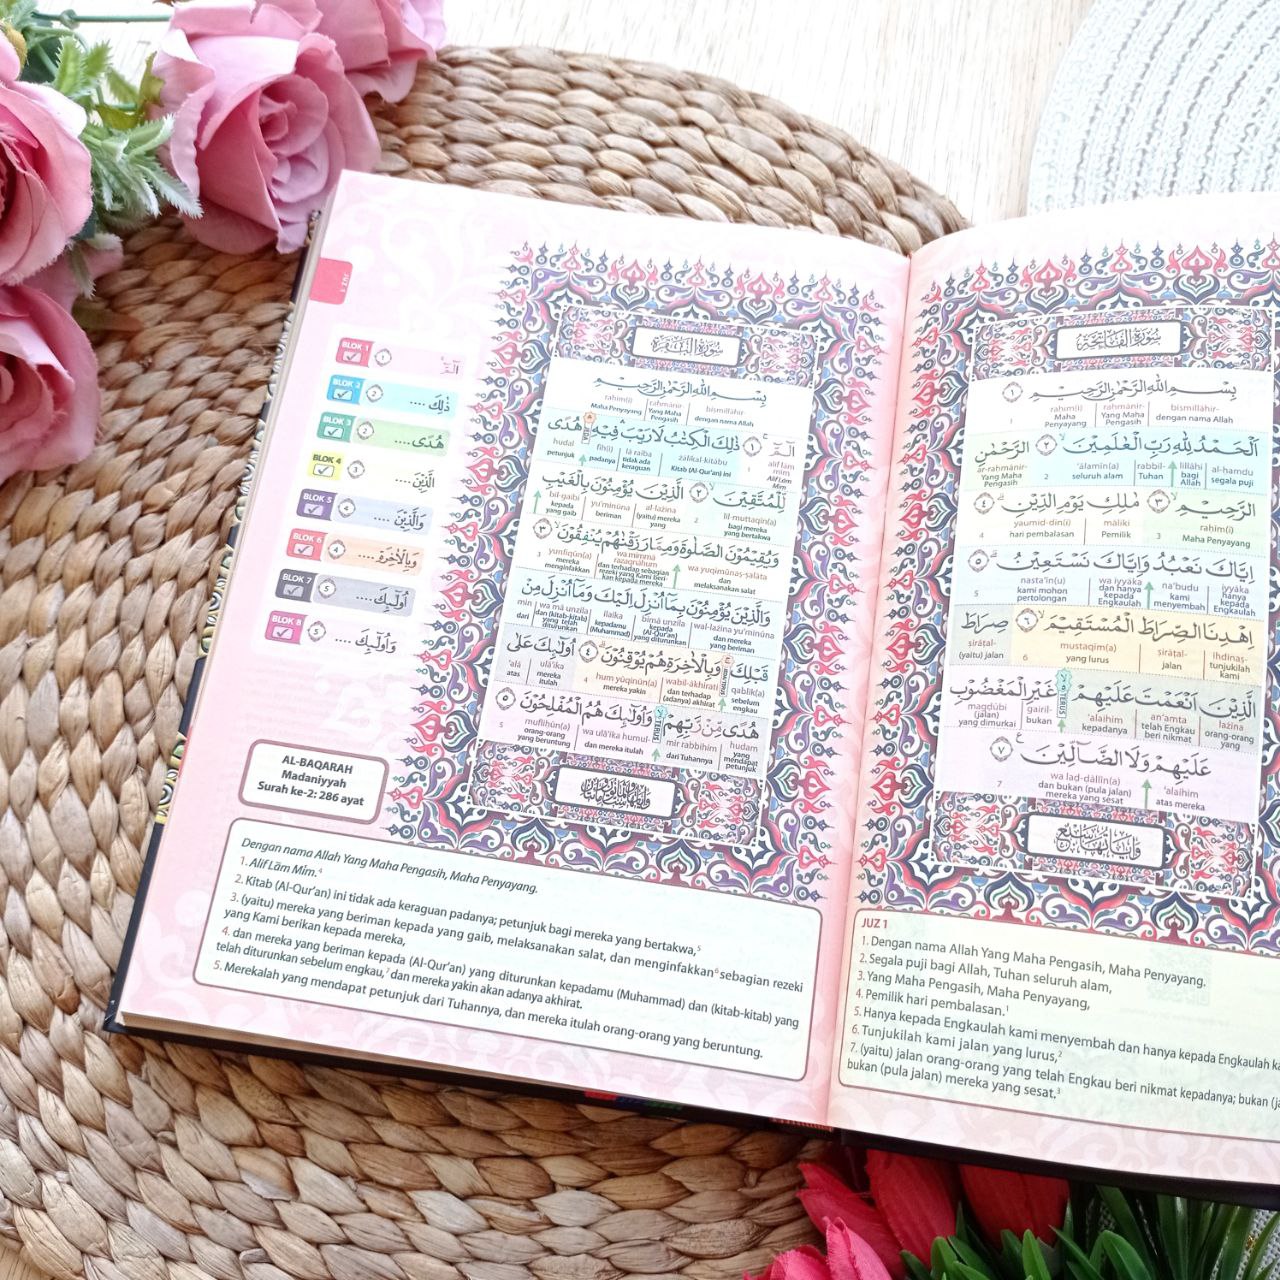 سُوْرَةُ الْفَاتِحَةِ
بِسْمِ اللّٰهِ الرَّحْمٰنِ الرَّحِيْمِ ١
bismillāhir- rahmānir- rahīm(i) 1
dengan nama Allah Yang Maha Pengasih Maha Penyayang
اَلْحَمْدُ لِلّٰهِ رَبِّ الْعٰلَمِيْنَ ٢ الرَّحْمٰنِ
al-hamdu lillāhi rabbil- 'ālamīn(a) 2 ar-rahmānir-
segala puji bagi Allah Tuhan seluruh alam Yang Maha Pengasih
الرَّحِيْمِ ٣ مٰلِكِ يَوْمِ الدِّيْنِ ٤
rahīm(i) 3 māliki yaumid-dīn(i) 4
Maha Penyayang Pemilik hari pembalasan
اِيَّاكَ نَعْبُدُ وَاِيَّاكَ نَسْتَعِيْنُ ٥
iyyāka na'budu wa iyyāka nasta'īn(u) 5
hanya kepada Engkaulah kami menyembah dan hanya kepada Engkaulah kami mohon pertolongan
اِهْدِنَا الصِّرَاطَ الْمُسْتَقِيْمَ ٦ صِرَاطَ
ihdinaṣ- ṣirāṭal- mustaqīm(a) 6 ṣirāṭal-
tunjukilah kami jalan yang lurus (yaitu) jalan
الَّذِيْنَ اَنْعَمْتَ عَلَيْهِمْ TERUS غَيْرِ الْمَغْضُوْبِ
lażīna an'amta 'alaihim gairil- magḍūbi
orang-orang yang telah Engkau beri nikmat kepadanya bukan (jalan) yang dimurkai
عَلَيْهِمْ وَلَا الضَّاۤلِّيْنَ ٧
'alaihim wa laḍ-ḍāllīn(a) 7
atas mereka dan bukan (pula jalan) mereka yang sesat
وَاٰيَاتُهَا سَبْعٌ
JUZ 1
1. Dengan nama Allah Yang Maha Pengasih, Maha Penyayang.
2. Segala puji bagi Allah, Tuhan seluruh alam,
3. Yang Maha Pengasih, Maha Penyayang,
4. Pemilik hari pembalasan.¹
5. Hanya kepada Engkaulah kami menyembah dan hanya kepada Engkaulah
6. Tunjukilah kami jalan yang lurus,²
7. (yaitu) jalan orang-orang yang telah Engkau beri nikmat kepadanya; bukan
bukan (pula jalan) mereka yang sesat.³
JUZ 1
BLOK 1 ١ الۤمّۤ
BLOK 2 ٢ ذٰلِكَ ....
BLOK 3 ٢ هُدًى....
BLOK 4 ٣ الَّذِيْنَ
BLOK 5 ٤ وَالَّذِيْنَ ....
BLOK 6 ٤ وَبِالْاٰخِرَةِ....
BLOK 7 ٥ اُولٰۤىِٕكَ....
BLOK 8 ٥ وَاُولٰۤىِٕكَ ....
سُوْرَةُ الْبَقَرَةِ
بِسْمِ اللّٰهِ الرَّحْمٰنِ الرَّحِيْمِ
bismillāhir- rahmānir- rahīm(i)
dengan nama Allah Yang Maha Pengasih Maha Penyayang
الۤمّۤ ١ ذٰلِكَ الْكِتٰبُ لَا رَيْبَ فِيْهِ هُدًى
alif lām mīm 1 żālikal-kitābu lā raiba fīh(i) hudal
Alif Lām Mīm Kitab (Al-Qur'an) ini tidak ada keraguan padanya petunjuk
لِّلْمُتَّقِيْنَ ٢ الَّذِيْنَ يُؤْمِنُوْنَ بِالْغَيْبِ
lil-muttaqīn(a) 2 al-lażīna yu'minūna bil-gaibi
bagi mereka yang bertakwa (yaitu) mereka yang beriman kepada yang gaib
وَيُقِيْمُوْنَ الصَّلٰوةَ وَمِمَّا رَزَقْنٰهُمْ يُنْفِقُوْنَ ٣
wa yuqīmūnaṣ-ṣalāta wa mimmā razaqnāhum yunfiqūn(a) 3
dan melaksanakan salat dan terhadap sebagian rezeki yang Kami berikan kepada mereka menginfakkan
وَالَّذِيْنَ يُؤْمِنُوْنَ بِمَآ اُنْزِلَ اِلَيْكَ وَمَآ اُنْزِلَ مِنْ
wal-lażīna yu'minūna bimā unzila ilaika wa mā unzila min
dan mereka yang beriman kepada (Al-Qur'an) yang diturunkan kepadamu (Muhammad) dan (kitab-kitab) yang telah diturunkan dari
قَبْلِكَ وَبِالْاٰخِرَةِ هُمْ يُوْقِنُوْنَ ٤ اُولٰۤىِٕكَ عَلٰى
qablik(a) wabil-ākhirati hum yūqinūn(a) 4 ulā'ika 'alā
sebelum engkau dan terhadap (adanya) akhirat mereka yakin mereka itulah atas
هُدًى مِّنْ رَّبِّهِمْ TERUS وَاُولٰۤىِٕكَ هُمُ الْمُفْلِحُوْنَ ٥
hudam mir rabbihim wa ulā'ika humul- mufliḥūn(a) 5
yang mendapat petunjuk dari Tuhannya dan mereka itulah orang-orang yang beruntung
AL-BAQARAH
Madaniyyah
Surah ke-2: 286 ayat
Dengan nama Allah Yang Maha Pengasih, Maha Penyayang.
1. Alif Lām Mīm.⁴
2. Kitab (Al-Qur'an) ini tidak ada keraguan padanya; petunjuk bagi mereka yang bertakwa,⁵
3. (yaitu) mereka yang beriman kepada yang gaib, melaksanakan salat, dan menginfakkan⁶ sebagian rezeki
yang Kami berikan kepada mereka,
4. dan mereka yang beriman kepada (Al-Qur'an) yang diturunkan kepadamu (Muhammad) dan (kitab-kitab) yang
telah diturunkan sebelum engkau,⁷ dan mereka yakin akan adanya akhirat.
5. Merekalah yang mendapat petunjuk dari Tuhannya, dan mereka itulah orang-orang yang beruntung.